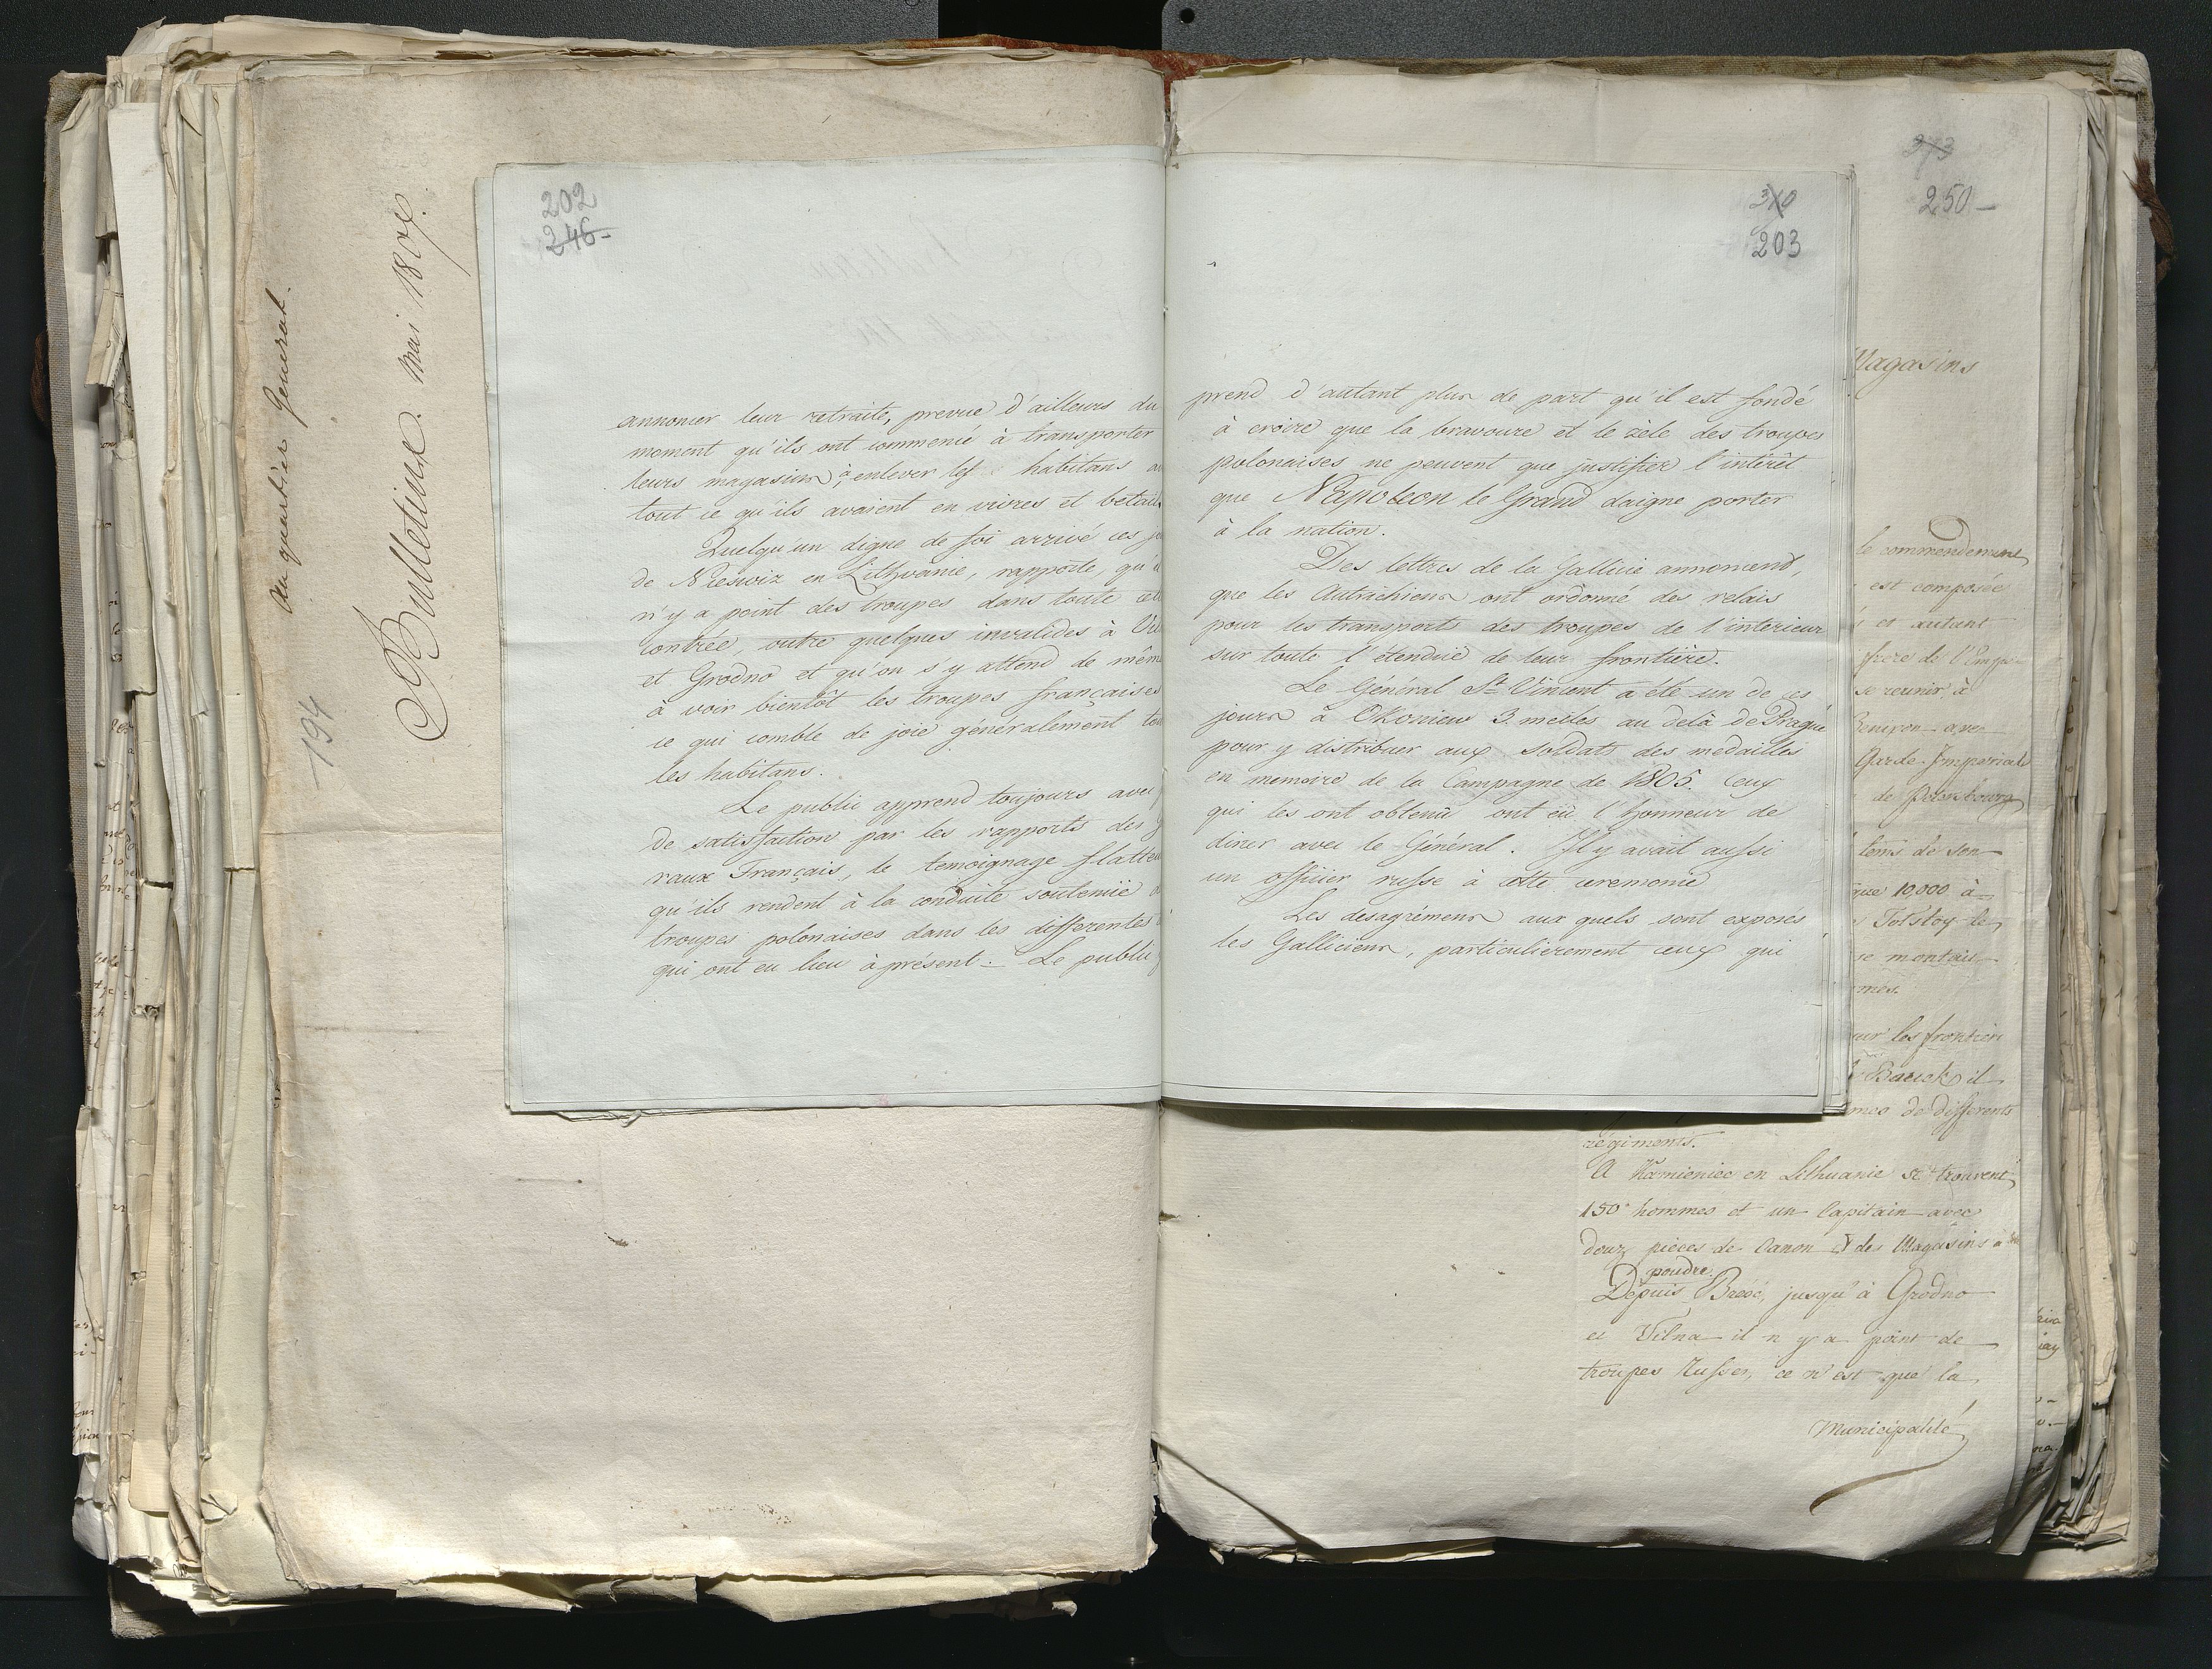 au quartier General.
Bulletins. mai 1807.
194
202
246-
annoncer leur retraite, prevue d'ailleurs du
moment qu'ils ont commencé à transporter
leurs magasins, à enlever les habitans
tout ce qu'ils avaient en vivres et betail
Quelqu'un digne de foi arrivé ces
de Nieswiz en Lithvanie, rapporte, qu'il
n'y a point des troupes dans toute cette
contrée, outre quelques invalides à
et Grodno et qu'on s'y attend de même
à voir bientôt les troupes françaises
ce qui comble de joie généralement
les habitans.
Le public apprend toujours avec
de satisfaction par les rapports des
raux Français, le temoignage
qu'ils rendent à la conduite soutenüe
troupes polonaises dans les differentes
qui ont eu lieu àprésent._ Le public
203
prend d'autant plus de part qu'il est fondé
à croire que la bravoure et le zéle des troupes
polonaises ne peuvent que justifier l'intérêt
que Napoleon le Grand daigne porter
à la nation.
Des lettres de la Gallicie annoncend,
que les Autrichiens ont ordonné des relais
pour les transports des troupes de l'interieur
sur toute l'étenduë de leur frontière.
Le Général St Vincent a été un de ces
jours à Okoniew 3 meiles au delà de Prague
pour y distribuer aux soldats des medailles
en memoire de la Campagne de 1805. Ceux
qui les ont obtenû ont eü l'honneur de
diner avec le Général. Il y avait aussi
un officier russe à cette ceremonie
Les desagrémens aux quels sont exposés
les Galliciens, particulierement ceux qui
273
250-
Magasins
le commendement
est composée
et autant
frere de l'Empe-
se reunir à
Garde Imperiale
de
tems de son
que 10,000 à
Tolstoy le
se montait
mes.
sur les frontier
il
mes de differents
régiments.
A Kamieniec en Lithuanie se trouvent
150 hommes et un Capitain avec
douz pieces de Canon & des Magasins à
poudre.
Depuis Bresc, jusqu'à Grodno
et Vilna il n'y a point de
troupes Russes, ce n'est que la
Municipalité